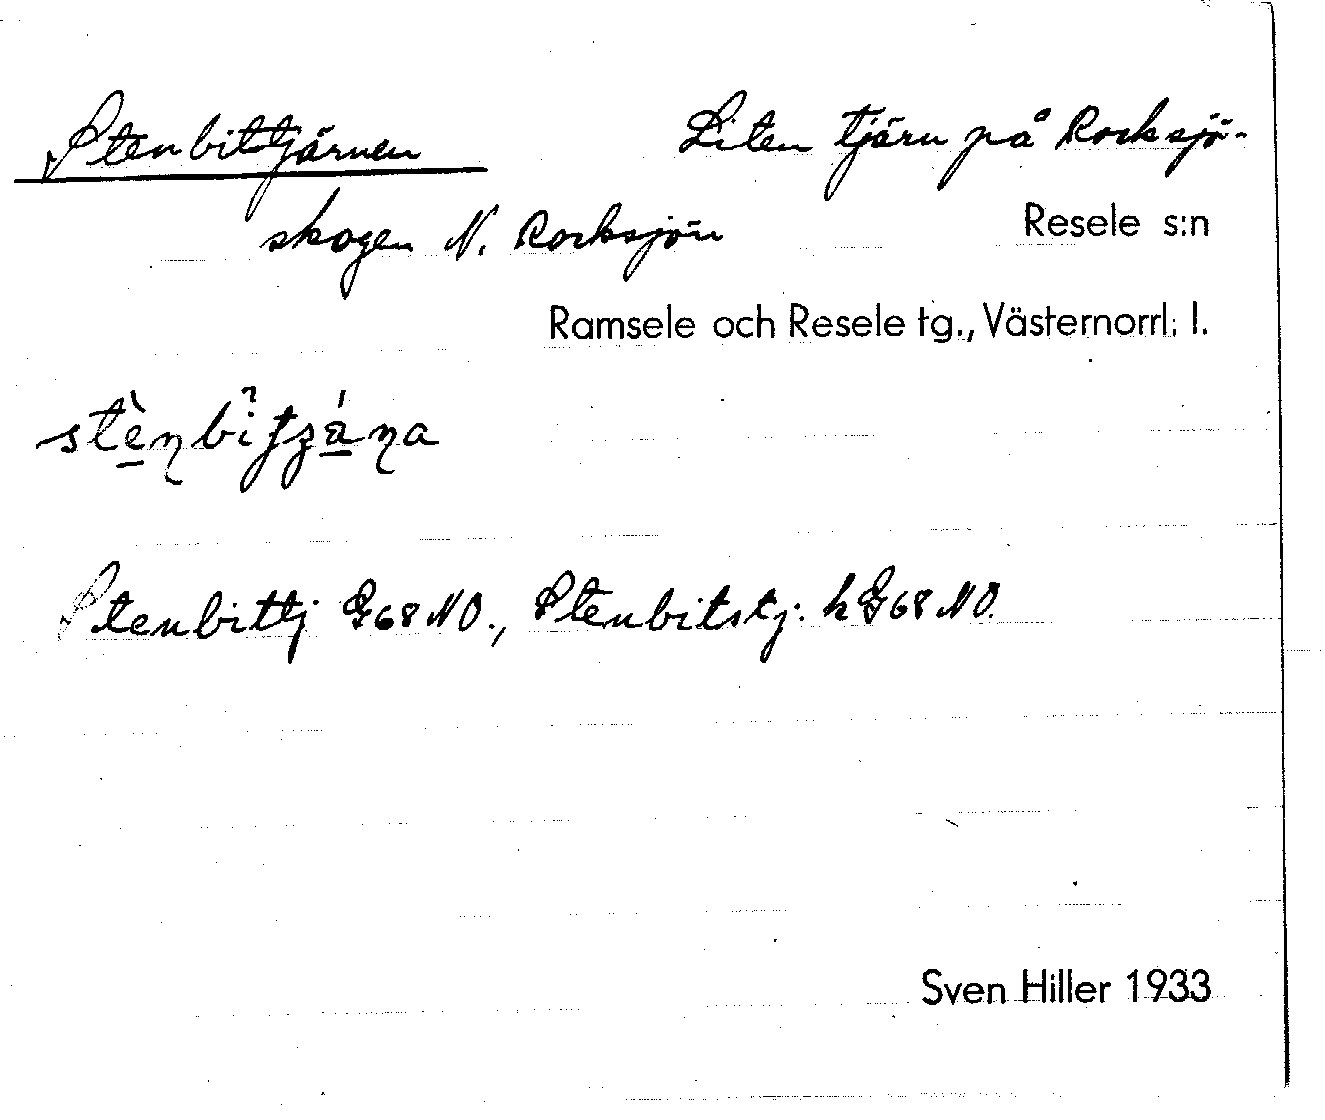 Stenbittjärnen Liten tjärn på Rocksjö-
skogen N. Rocksjön Resele s:n
Ramsele och Resele tg., Västernorrl: l.
Stenbittj G68 NO., Stenbitstj. h G68 NO.
Sven Hiller 1933